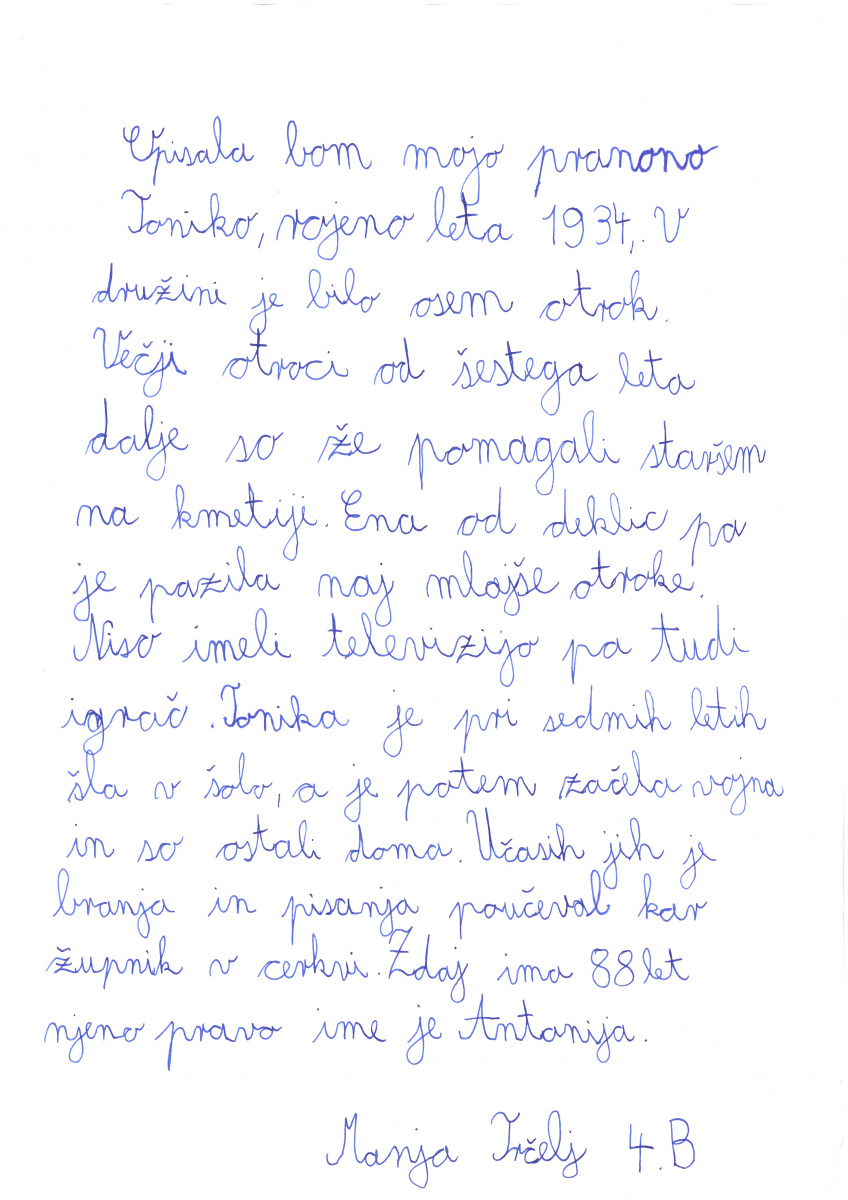 Opisala bom mojo pranono
Toniko, rojeno leta 1934,. V
družini je bilo osem otrok.
Večji otroci od šestega leta
dalje so že pomagali staršem
na kmetiji. Ena od deklic pa
je pazila naj mlajše otroke.
Niso imeli televizijo pa tudi
igrač. Tonika je pri sedmih letih
šla v šolo, a je potem začela vojna
in so ostali doma. Včasih jih je
branja in pisanja poučeval kar
župnik v cerkvi. Zdaj ima 88 let
njeno pravo ime je Antonija.
Manja Trčelj 4. B